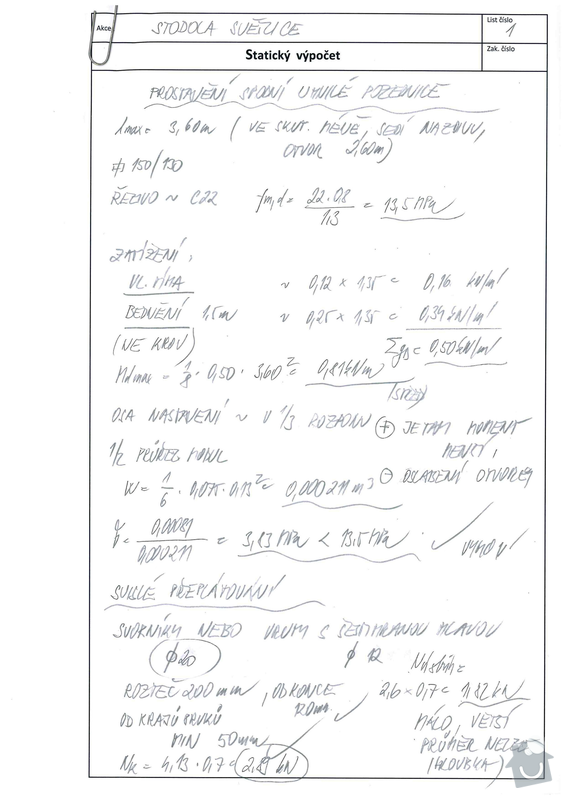 Akce
STODOLA SVĚTICE
List číslo
1
Statický výpočet
Zak. číslo
PROSTAVĚNÍ SPODNÍ UHNILÉ POZEDNICE
lmax = 3,60m ( VE SKUT. MÉNĚ, SEDÍ NA ZDIVU,
OTVOR 2,60m)
150/130
ŘEZIVO ~ C22 fm,d = 22·0,8 / 1,3 = 13,5 MPa
ZATÍŽENÍ:
VL. TÍHA ~ 0,12 × 1,35 = 0,16 kN/m'
BEDNĚNÍ 1,5m ~ 0,25 × 1,35 = 0,34 kN/m'
(NE KROV) Σgd = 0,50 kN/m'
Mdmax = 1/8 · 0,50 · 3,60² = 0,81 kNm
(STŘED)
OSA NASTAVENÍ ~ V 1/3 ROZPONU + JE TAM MOMENT
MENŠÍ,
1/2 PRŮŘEZ
- OSLABENÍ OTVOREM
W = 1/6 · 0,075 · 0,13² = 0,000211 m³
= 0,00081 / 0,000211 = 3,83 MPa < 13,5 MPa
SVISLÉ PŘEPLÁTOVÁNÍ
SVORNÍKY NEBO VRUTY S ŠESTIHRANOU HLAVOU
φ20 φ 12
ROZTEČ 200 mm, OD KONCE 2,6 × 0,7 = 1,82 kN
120mm
OD KRAJŮ
MIN 50mm
MÁLO, VĚTŠÍ
PRŮMĚR NELZE
Nk = 4,13 · 0,7 = 2,89 kN
(HLOUBKA)